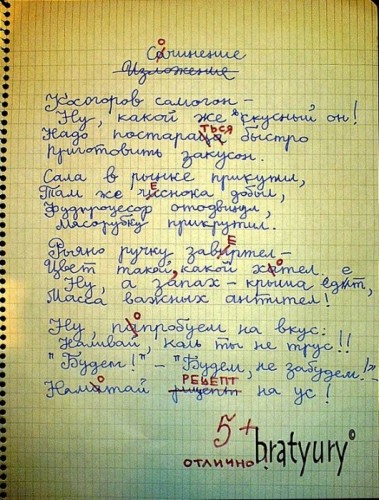 Сочинение
Изложение
Косогоров самогон –
Ну, какой же вкусный он!
Надо постараться быстро
Приготовить закусон.
Сала в рынке прикупил,
Там же чеснока добыл,
Фудпроцесор отодвинул,
Мясорубку прикрутил.
Рьяно ручку завертел –
Цвет такой, какой хотел,
Ну, а запах – крыша едет,
Масса важных антител!
Ну, попробуем на вкус:
Наливай, коль ты не трус!!
"Будем!" – "Будем, не забудем!"
РЕЦЕПТ
Намотай рицепт на ус!
5+
ОТЛИЧНО!
bratyury©